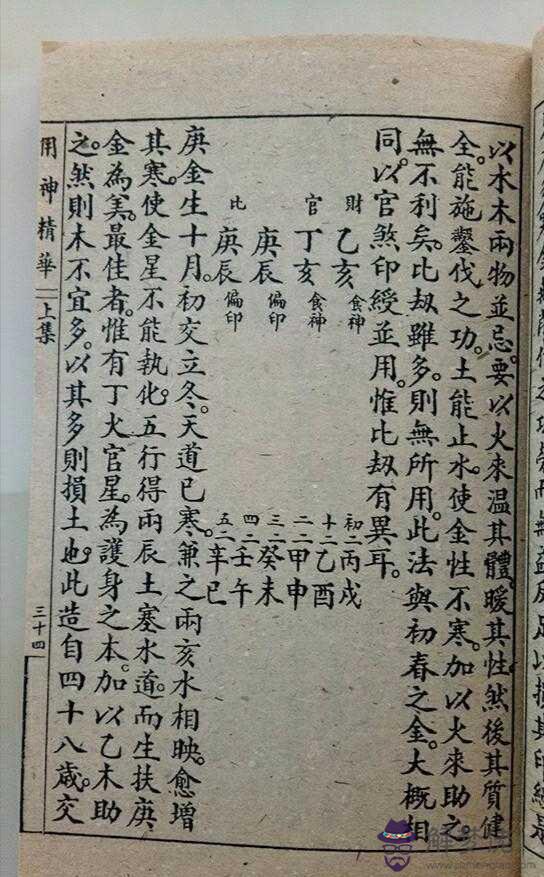 以水木兩物並忌。要以火來溫其體。暖其性。然後其質健
全。能施鑿伐之功。土能止水。使金性不寒。加以火來助之。
無不利矣。比刼雖多。則無所用。此法與初春之金。大概相
同。以官煞印綬並用。惟比刼有異耳。
財 乙亥 食神
官 丁亥 食神
庚辰 偏印
比 庚辰 偏印
初二 丙戌
十二 乙酉
二二 甲申
三二 癸未
四二 壬午
五二 辛巳
庚金生十月。初交立冬。天道已寒。兼之兩亥水相映。愈增
其寒。使金星不能執化。五行得兩辰土塞水道。而生扶庚
金為美。最佳者。惟有丁火官星。為護身之本。加以乙木助
之。然則木不宜多。以其多則損土也。此造自四十八歲。交
用神精華 上集 三十四